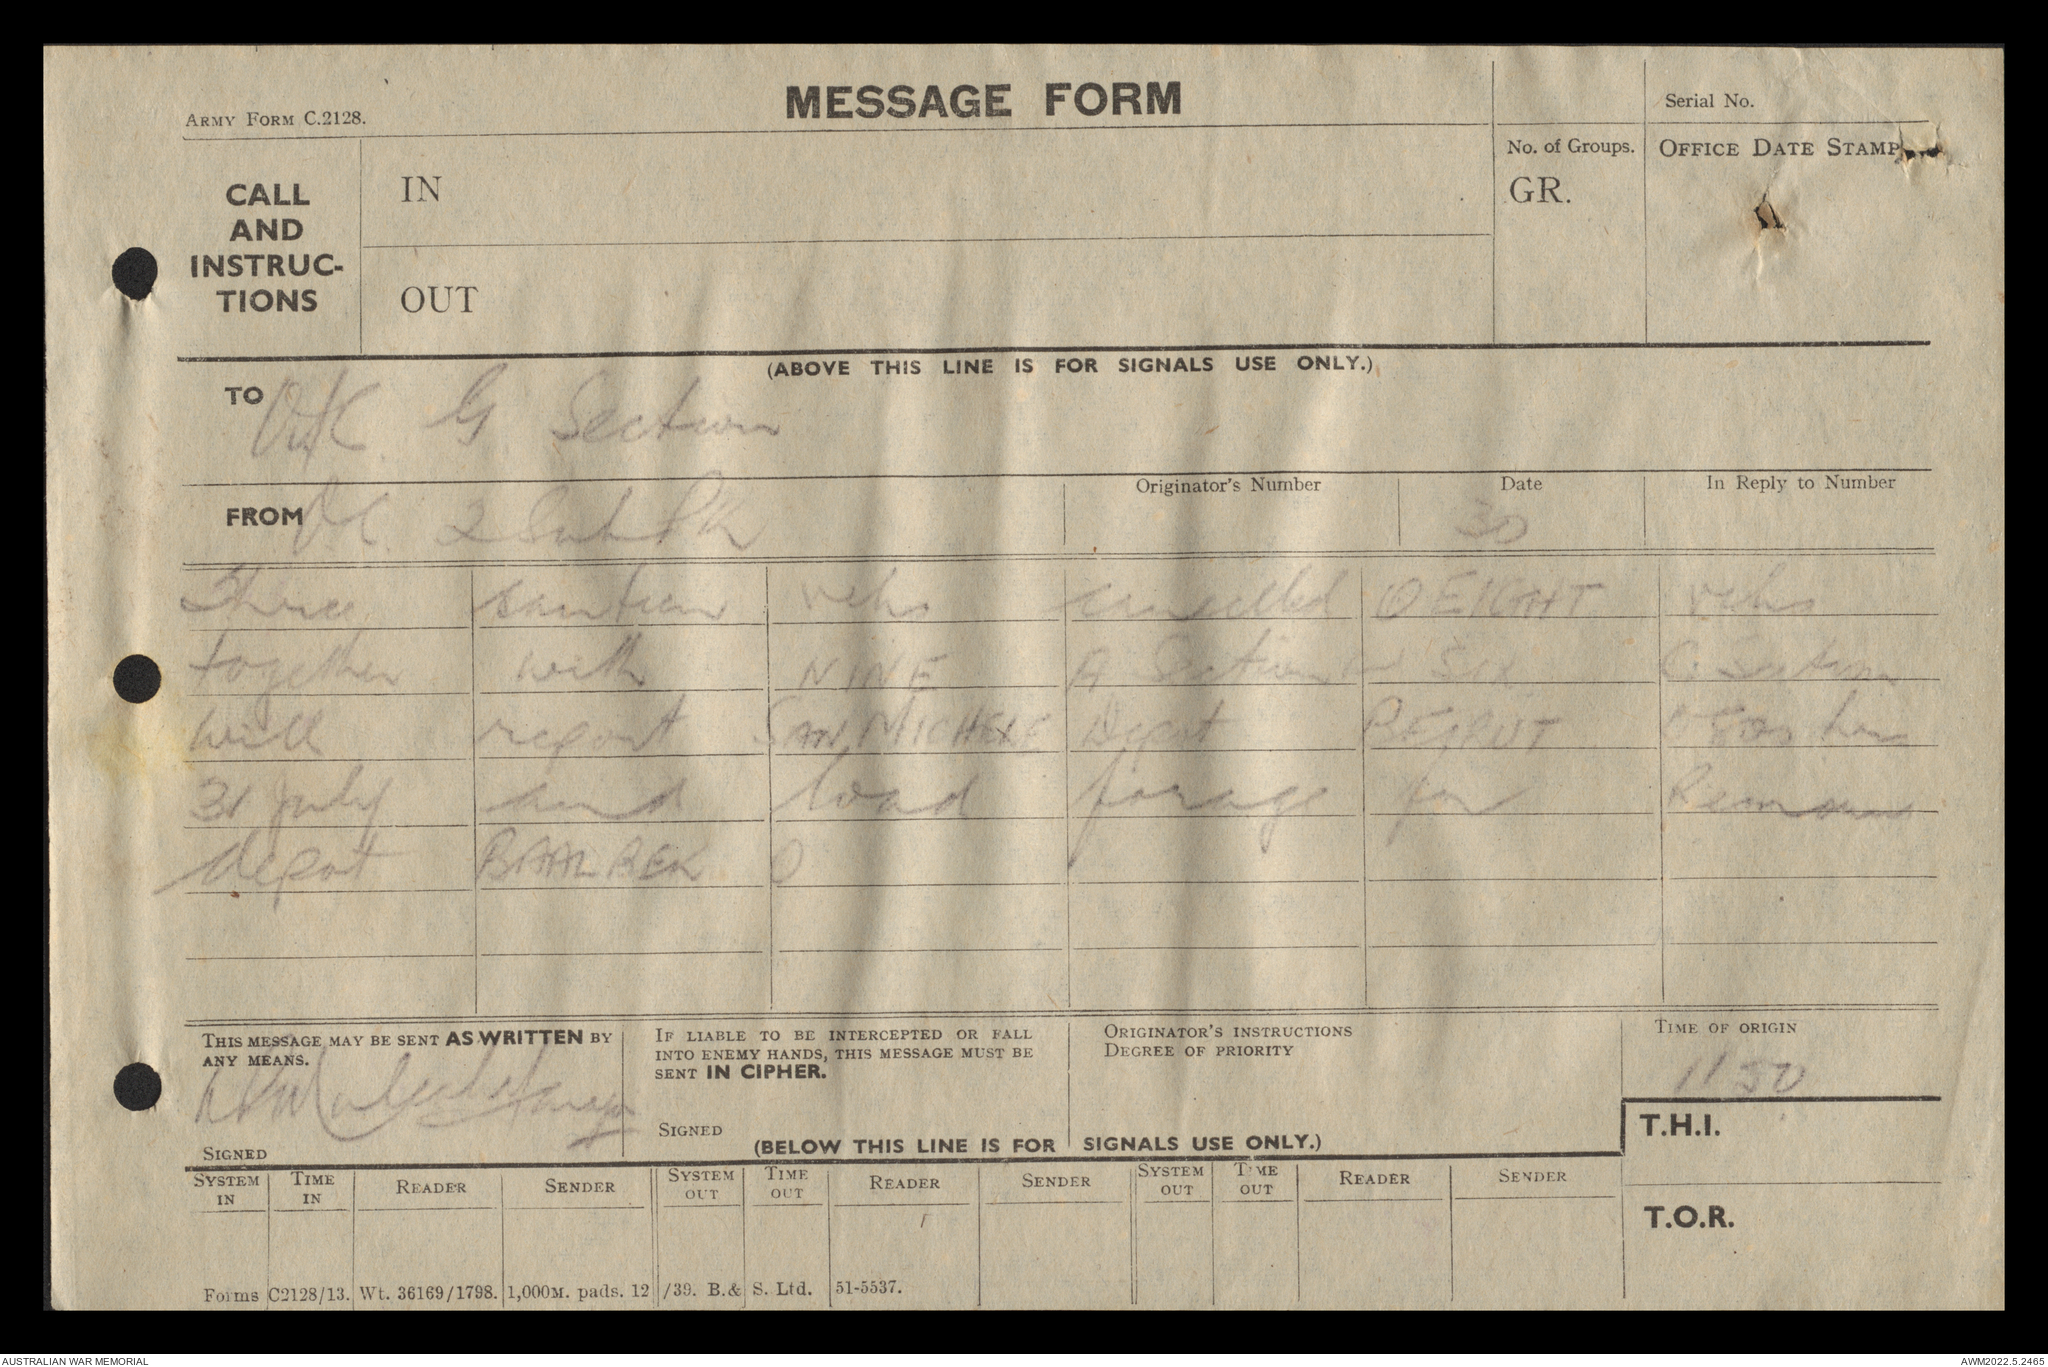 MESSAGE FORM
ARMY FORM C.2128.
Serial No.
CALL AND INSTRUC-TIONS
IN
No. of Groups.
GR.
OFFICE DATE STAMP
OUT
(ABOVE THIS LINE IS FOR SIGNALS USE ONLY.)
TO G Section
FROM OC. 2 Sub Pk
Originator's Number
Date
30
In Reply to Number
Three vehs cancelled O EIGHT vehs
together with NINE A Section SIX C. Section
will report SAN MICHELE Depot BEIRUT
31 July and load forage for Remount
depot BAALBEK O
THIS MESSAGE MAY BE SENT AS WRITTEN BY ANY MEANS.
SIGNED
IF LIABLE TO BE INTERCEPTED OR FALL INTO ENEMY HANDS, THIS MESSAGE MUST BE SENT IN CIPHER.
SIGNED
ORIGINATOR'S INSTRUCTIONS
DEGREE OF PRIORITY
TIME OF ORIGIN
1150
(BELOW THIS LINE IS FOR SIGNALS USE ONLY.)
T.H.I.
SYSTEM IN TIME IN READER SENDER SYSTEM OUT TIME OUT READER SENDER SYSTEM OUT TIME OUT READER SENDER
T.O.R.
Forms C2128/13. Wt. 36169/1798. 1,000M. pads. 12/39. B.& S. Ltd. 51-5537.
AUSTRALIAN WAR MEMORIAL
AWM2022.5.2465